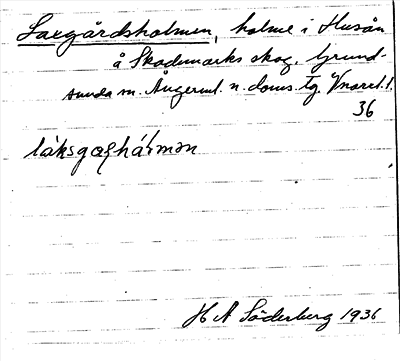 Laxgårdsholmen, holme i Husån
å Skademarks skog, Grund-
sunda sn. Ångerml. n. doms. tg.
36
låksgaʂhåɫmən
H A Söderberg 1936